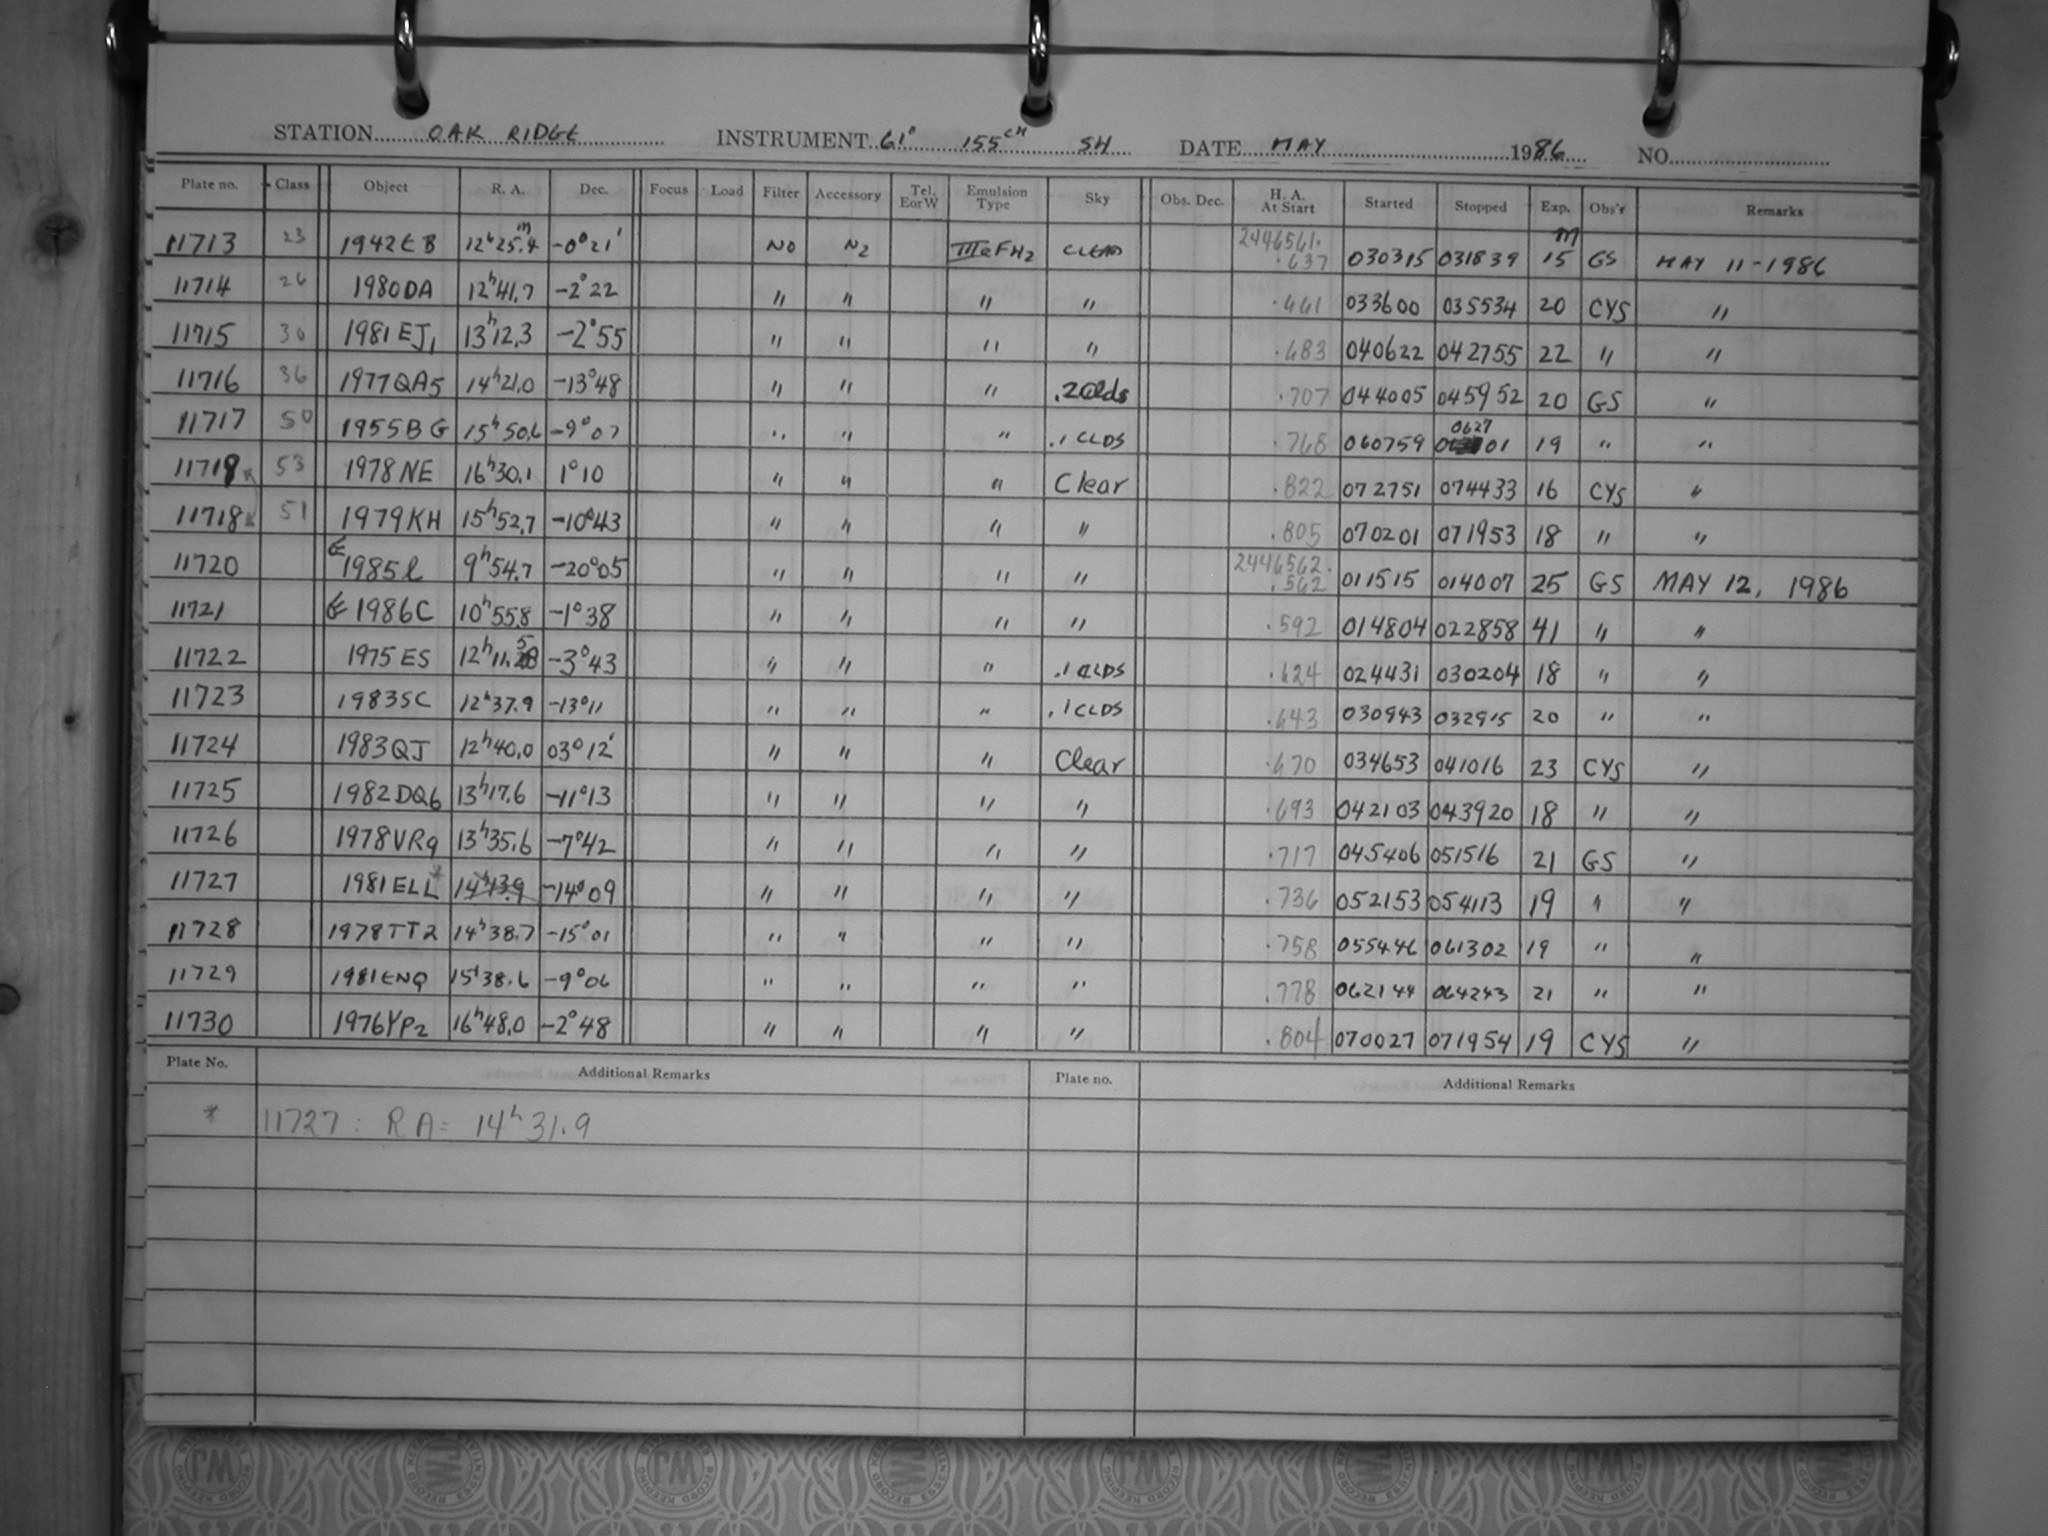 STATION OAK RIDGE INSTRUMENT 61" 155cm SH DATE MAY 1986 NO.
Plate no. Class Object R. A. Dec. Focus Load Filter Accessory Tel. EorW Emulsion Type Sky Obs. Dec. H. A. At Start Started Stopped Exp. Obs'r Remarks
11713 23 1942EB 12h25.4m -0°21' NO N2 IIIaFH2 CLEAR 2446561. .637 030315 031839 15m GS MAY 11-1986
11714 26 1980DA 12h41.7 -2°22 " " " " .661 033600 035534 20 CYS "
11715 30 1981EJ1 13h12.3 -2°55 " " " " .683 040622 042755 22 " "
11716 36 1977QA5 14h21.0 -13°48 " " " .2Clds .707 044005 045952 20 GS "
11717 50 1955BG 15h50.6 -9°07 " " " .1 CLDS .768 060759 0627 01 19 " "
11719 53 1978NE 16h30.1 1°10 " " " Clear .822 072751 074433 16 CYS "
11718 51 1979KH 15h52.7 -10°43 " " " " .805 070201 071953 18 " "
11720 1985l 9h54.7 -20°05 " " " " 2446562. .562 011515 014007 25 GS MAY 12, 1986
11721 1986C 10h55.8 -1°38 " " " " .592 014804 022858 41 " "
11722 1975ES 12h11.5 -3°43 " " " .1 CLDS .624 024431 030204 18 " "
11723 1983SC 12h37.9 -13°11 " " " .1CLDS .643 030943 032915 20 " "
11724 1983QJ 12h40.0 03°12' " " " Clear .670 034653 041016 23 CYS "
11725 1982DQ6 13h17.6 -11°13 " " " " .693 042103 043920 18 " "
11726 1978VR9 13h35.6 -7°42 " " " " .717 045406 051516 21 GS "
11727 1981ELL* 14h43.9 -14°09 " " " " .736 052153 054113 19 " "
11728 1978TT2 14h38.7 -15°01 " " " " .758 055446 061302 19 " "
11729 1981ENQ 15h38.6 -9°06 " " " " .778 062144 064243 21 " "
11730 1976YP2 16h48.0 -2°48 " " " " .804 070027 071954 19 CYS "
Plate No. Additional Remarks Plate no. Additional Remarks
* 11727 : RA= 14h31.9